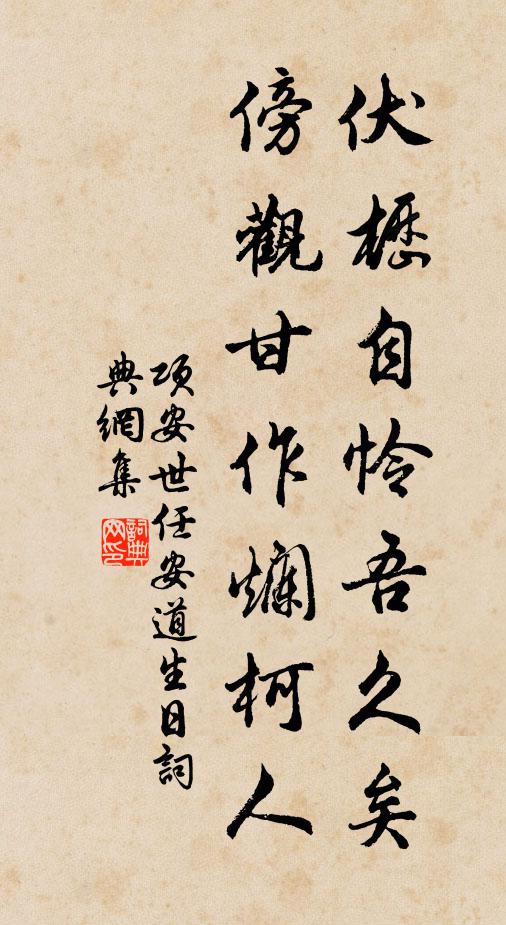 伏櫪自怜吾久矣
傍觀甘作爛柯人
項安世任安道生日詞
典網集
詞典網印